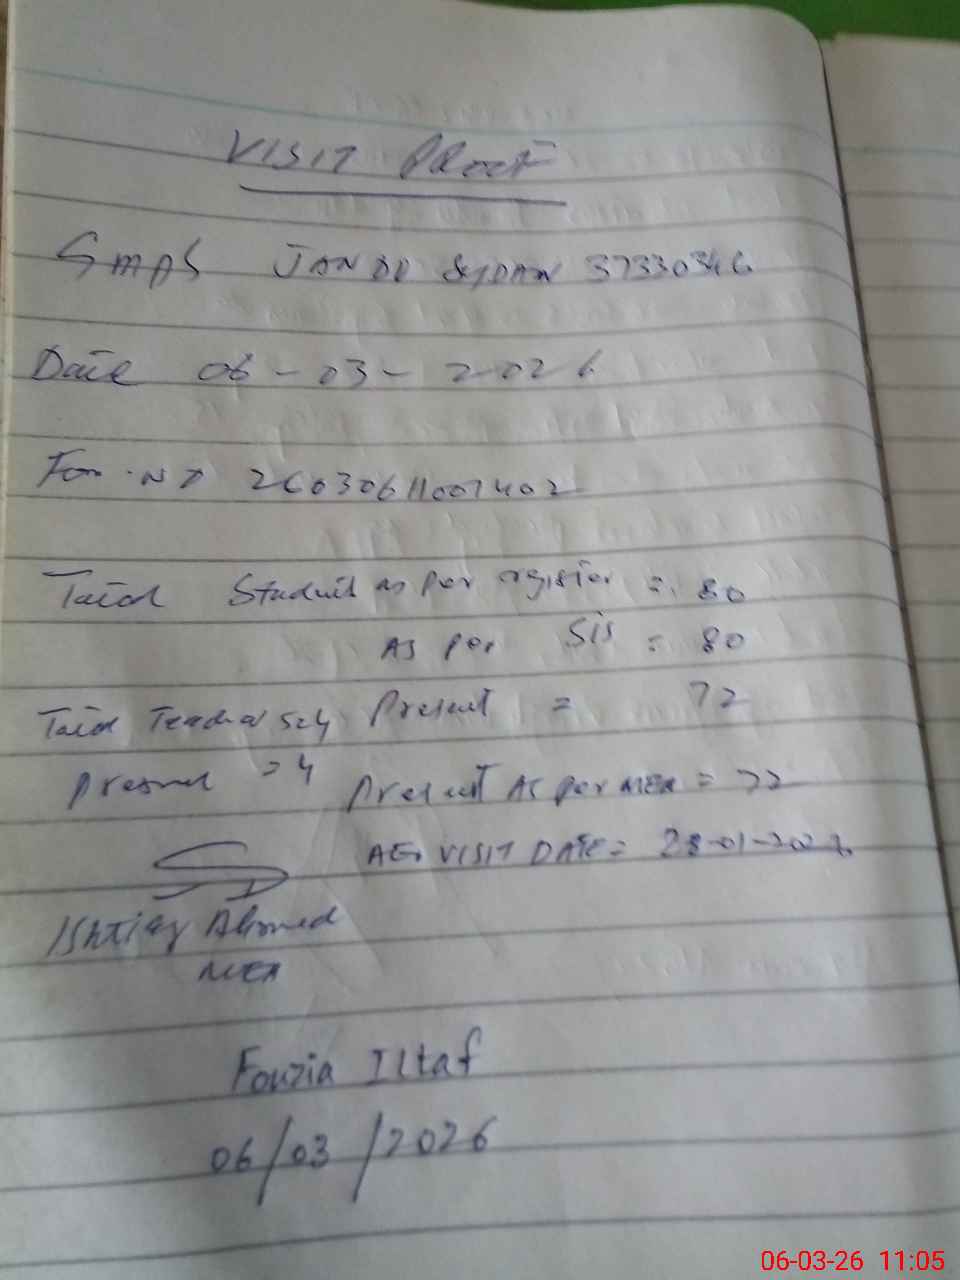 VISIT PROOF
GMPS JANDU SYDAN 37330346
Date 06-03-2026
For No 26030611001402
Total Students as per register = 80
As per SIS = 80
Total Teachers = 4 Present = 72
Present = 4 Present As per MEA = 72
AEO VISIT DATE = 28-01-2026
Ishtiaq Ahmed
MEA
Fouzia Iltaf
06/03/2026
06-03-26 11:05